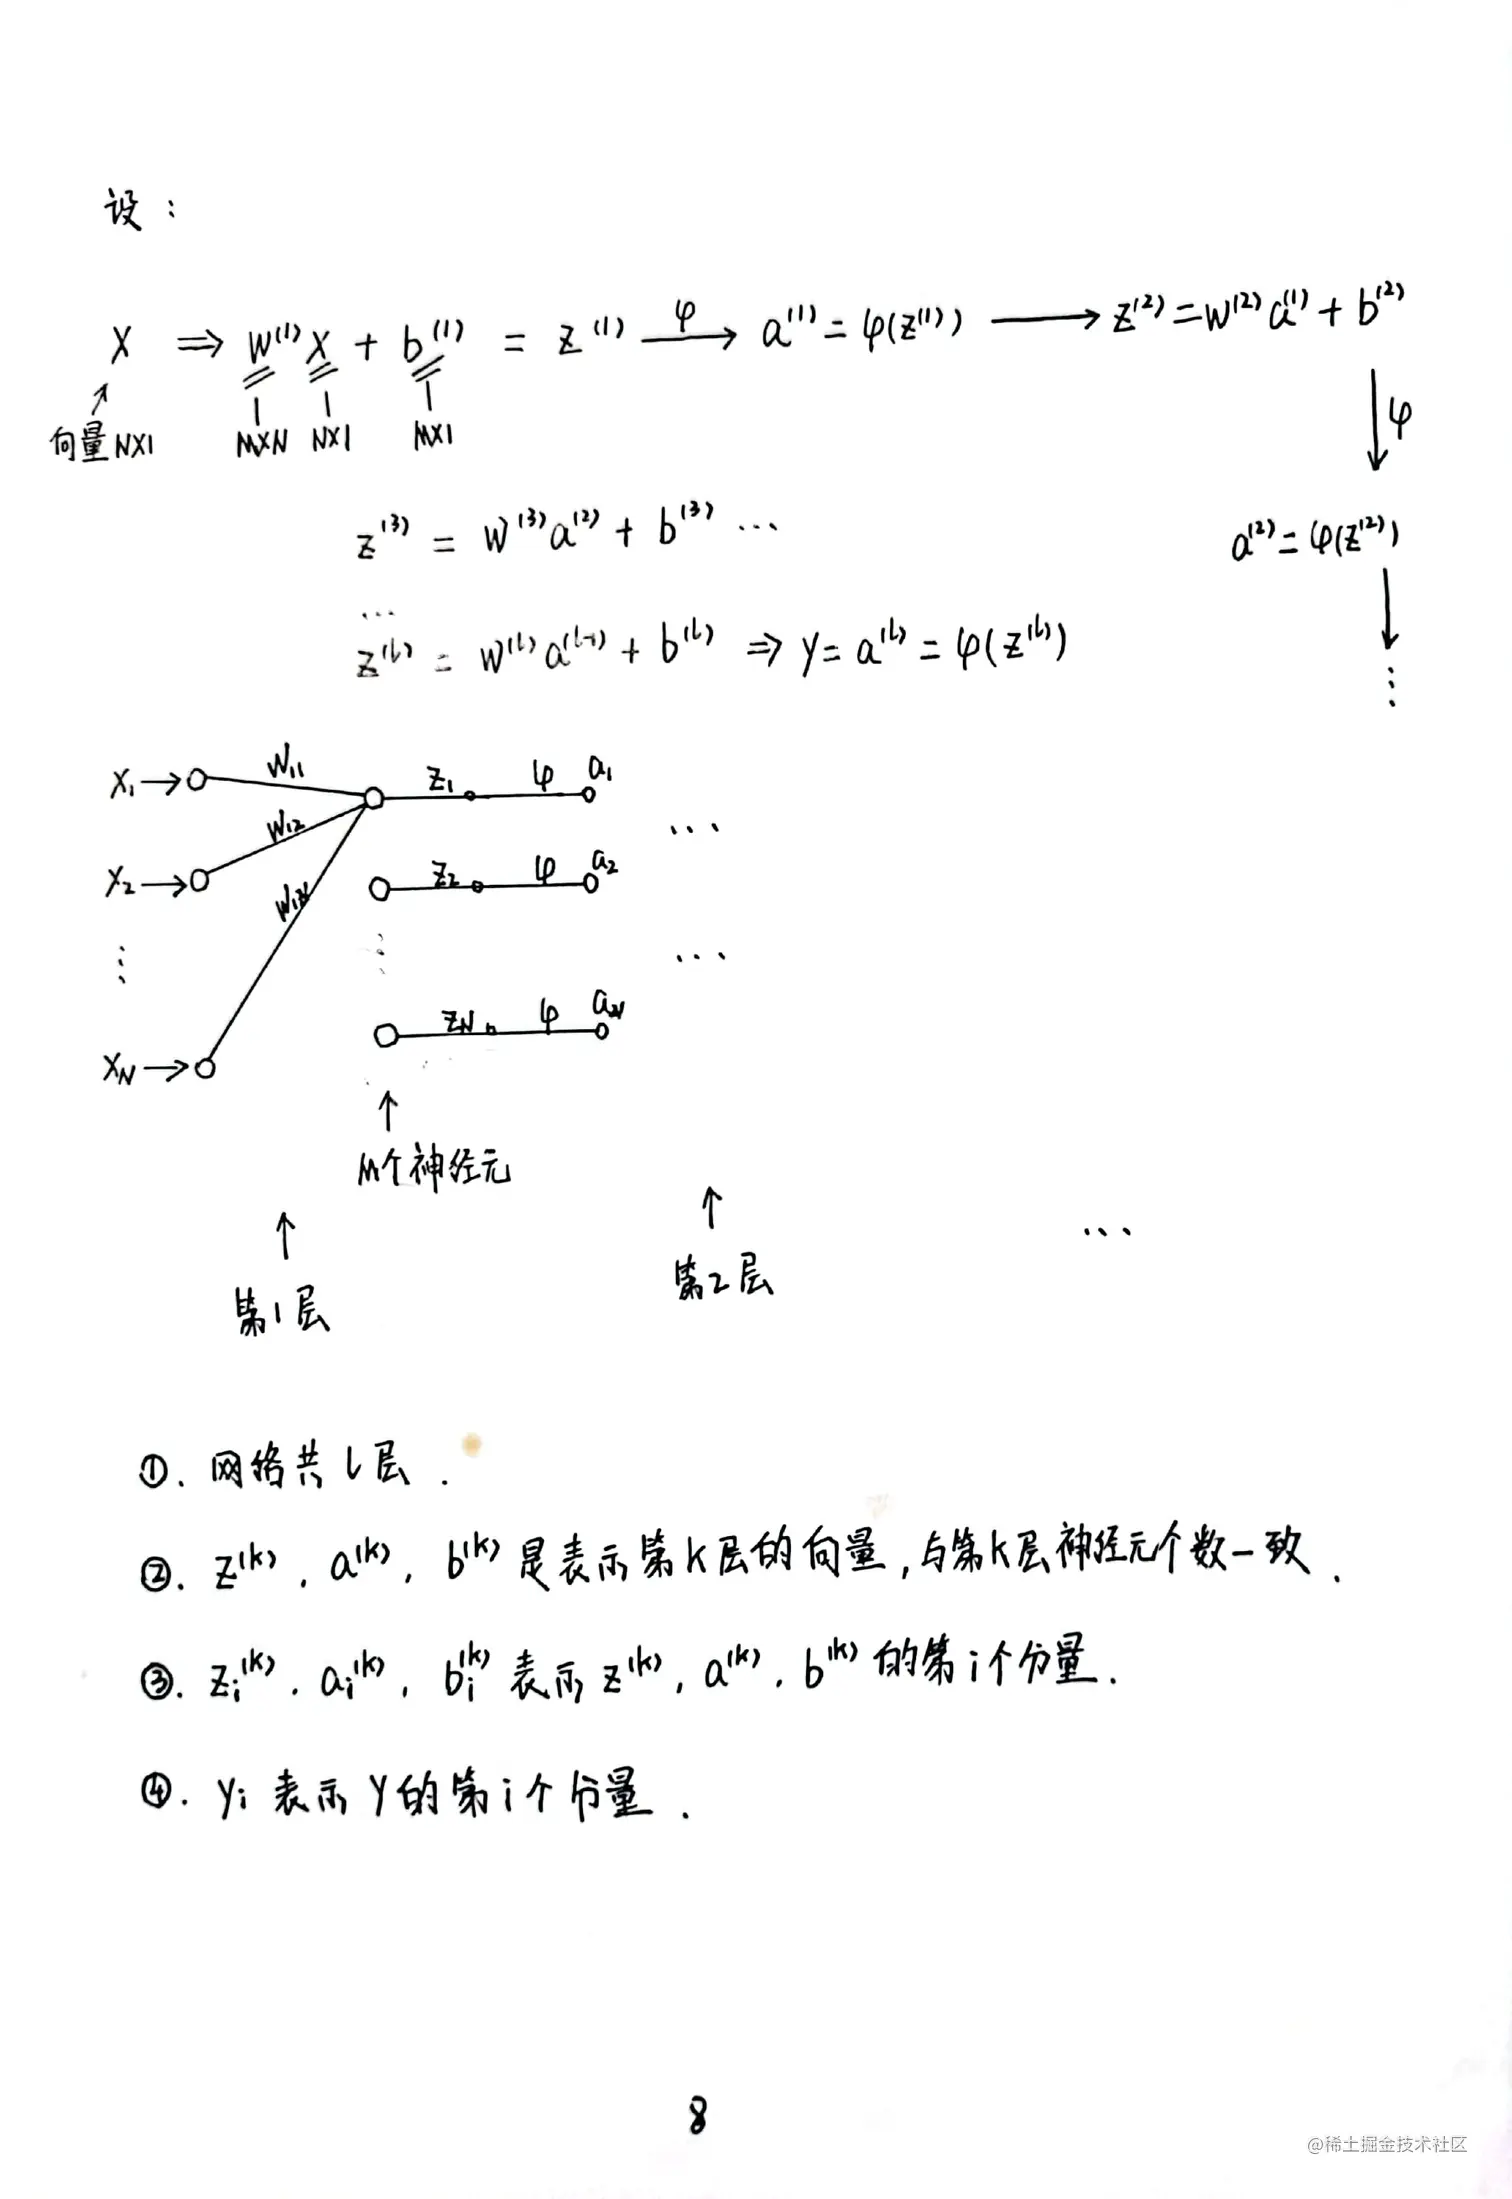 设：
X ⇒ W⁽¹⁾X + b⁽¹⁾ = z⁽¹⁾ —φ→ a⁽¹⁾ = φ(z⁽¹⁾) ⟶ z⁽²⁾ = W⁽²⁾a⁽¹⁾ + b⁽²⁾
向量N×1 M×N N×1 M×1 φ
z⁽³⁾ = W⁽³⁾a⁽²⁾ + b⁽³⁾ … a⁽²⁾ = φ(z⁽²⁾)
…
z⁽ˡ⁾ = W⁽ˡ⁾a⁽ˡ⁻¹⁾ + b⁽ˡ⁾ ⇒ y = a⁽ˡ⁾ = φ(z⁽ˡ⁾) ⋮
X₁ → W₁₁ z₁ φ a₁
W₁₂ …
X₂ → z₂ φ a₂
W₁N
⋮ ⋮ …
zN φ aN
XN →
M个神经元
第1层 第2层 …
①. 网络共l层.
②. z⁽ᵏ⁾, a⁽ᵏ⁾, b⁽ᵏ⁾是表示第k层的向量,与第k层神经元个数一致.
③. zᵢ⁽ᵏ⁾, aᵢ⁽ᵏ⁾, bᵢ⁽ᵏ⁾表示z⁽ᵏ⁾, a⁽ᵏ⁾, b⁽ᵏ⁾的第i个分量.
④. yᵢ表示y的第i个分量.
8
@稀土掘金技术社区